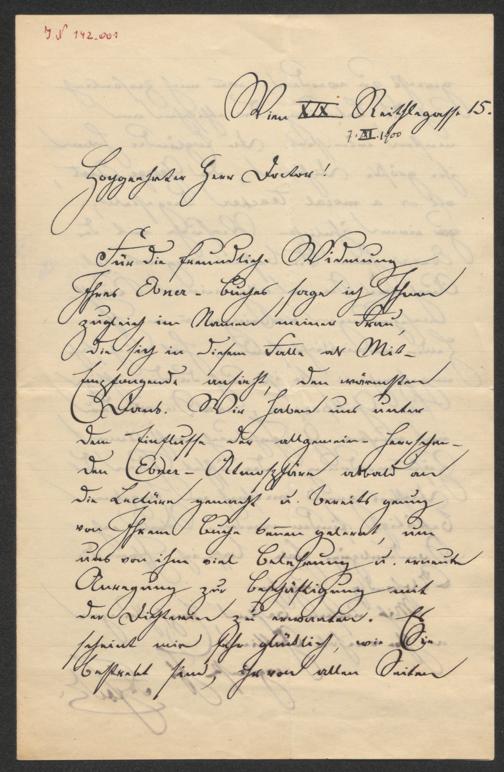 J.N 142.001
Wien XIX Reithlegasse 15.
7. XI. 1900
Hochgeehrter Herr Doctor!
Für die freundliche Widmung
Ihres Ebner-Buches sage ich Ihnen
zugleich im Namen meiner Frau,
die sich in diesem Falle als Mit-
Empfangende ansieht, den wärmsten
Dank. Wir haben uns unter
dem Einflusse der allgemein-herrschen-
den Ebner-Atmosphäre alsbald an
die Lectüre gemacht u. bereits genug
von Ihrem Buche kennen gelernt, um
uns von ihm viel Belehrung u. erneute
Anregung zur Beschäftigung mit
der Dichterin zu erwarten. Es
scheint mir sehr glücklich, wie Sie
bestrebt sind, ihr von allen Seiten